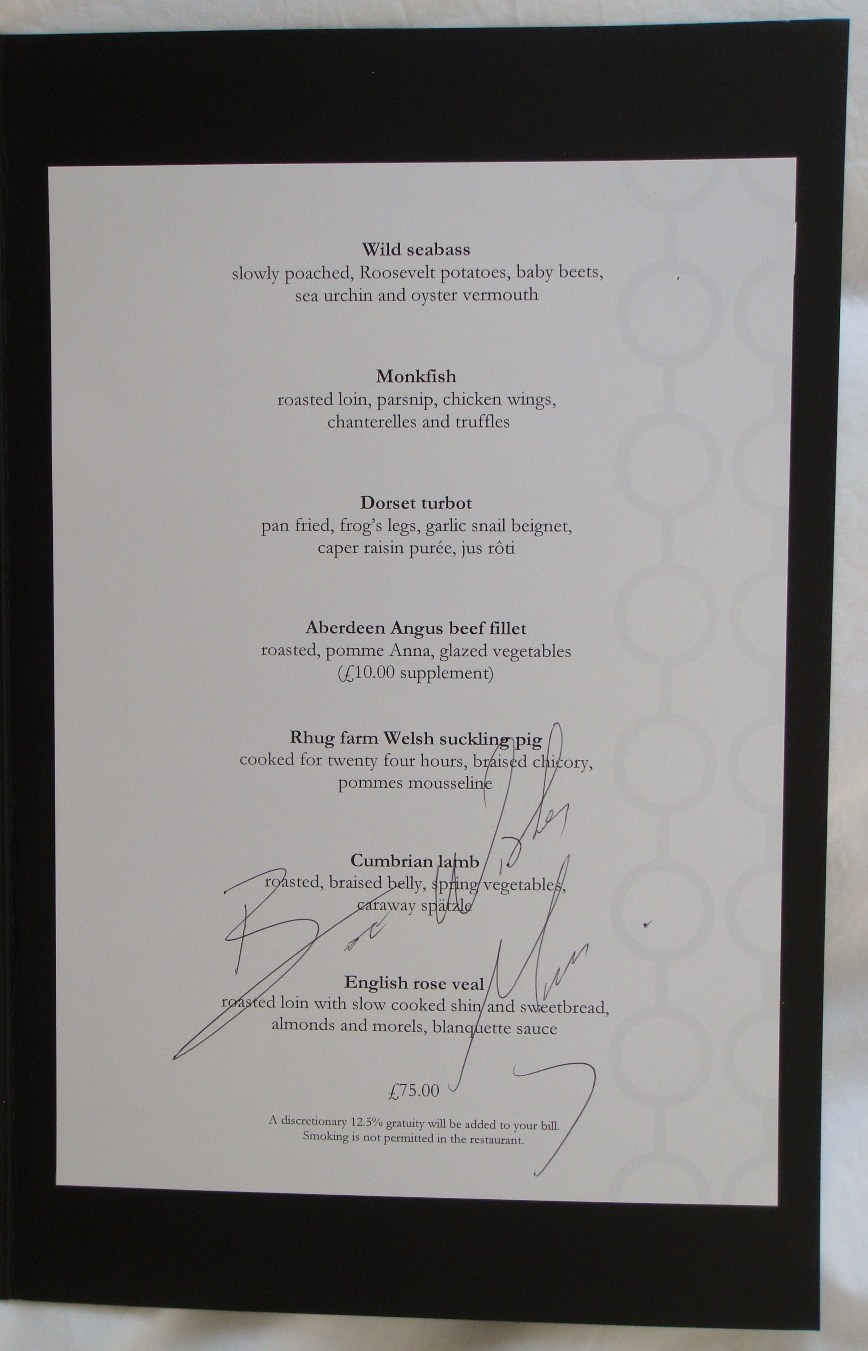 Wild seabass
slowly poached, Roosevelt potatoes, baby beets,
sea urchin and oyster vermouth
Monkfish
roasted loin, parsnip, chicken wings,
chanterelles and truffles
Dorset turbot
pan fried, frog's legs, garlic snail beignet,
caper raisin purée, jus rôti
Aberdeen Angus beef fillet
roasted, pomme Anna, glazed vegetables
(£10.00 supplement)
Rhug farm Welsh suckling pig
cooked for twenty four hours, braised chicory,
pommes mousseline
Cumbrian lamb
roasted, braised belly, spring vegetables,
caraway spätzle
English rose veal
roasted loin with slow cooked shin and sweetbread,
almonds and morels, blanquette sauce
£75.00
A discretionary 12.5% gratuity will be added to your bill.
Smoking is not permitted in the restaurant.